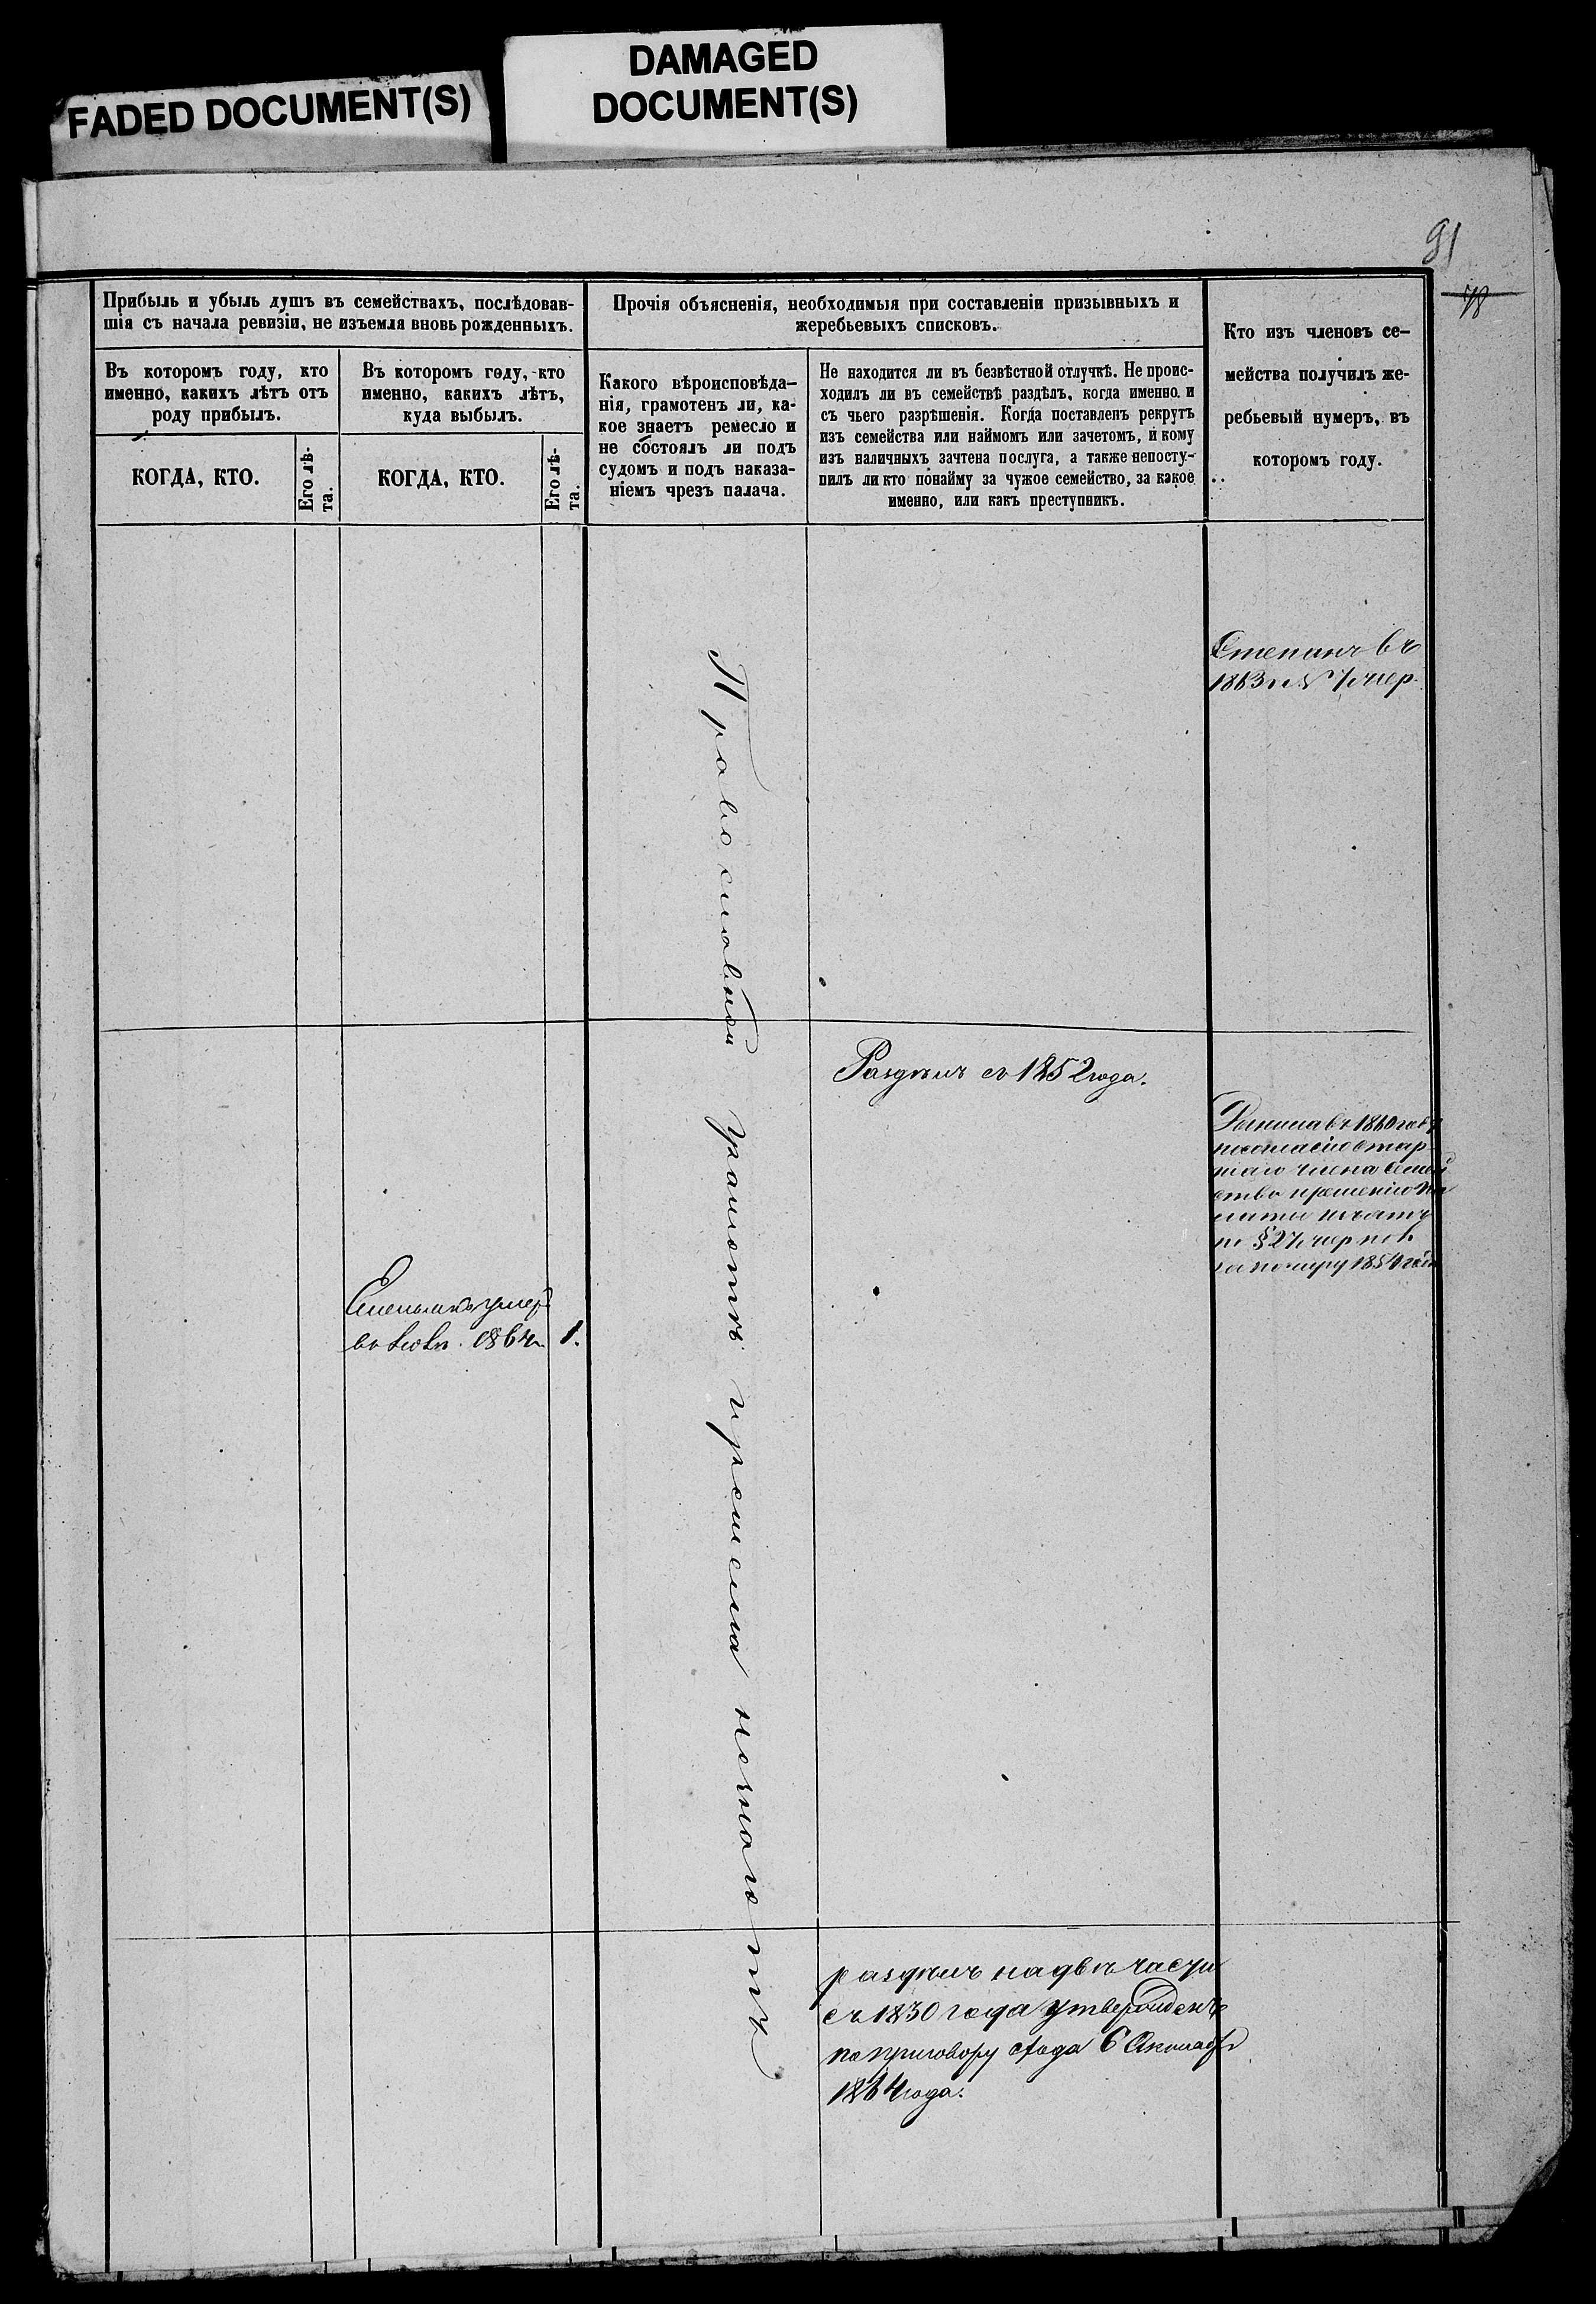 FADED DOCUMENT(S)
DAMAGED
DOCUMENT(S)
91
78
Прибыль и убыль душъ въ семействахъ, послѣдовав-
шія съ начала ревизіи, не изъемля вновь рожденныхъ.
Въ которомъ году, кто
именно, какихъ лѣтъ отъ
роду прибылъ.
КОГДА, КТО.
Его лѣ-
та.
Въ которомъ году, кто
именно, какихъ лѣтъ,
куда выбылъ.
КОГДА, КТО.
Его лѣ-
та.
Прочія объясненія, необходимыя при составленіи призывныхъ и
жеребьевыхъ списковъ.
Какого вѣроисповѣда-
нія, грамотенъ ли, ка-
кое знаетъ ремесло и
не состоялъ ли подъ
судомъ и подъ наказа-
ніемъ чрезъ палача.
Не находится ли въ безвѣстной отлучкѣ. Не проис-
ходилъ ли въ семействѣ раздѣлъ, когда именно и
съ чьего разрѣшенія. Когда поставленъ рекрутъ
изъ семейства или наймомъ или зачетомъ, и кому
изъ наличныхъ зачтена послуга, а также непосту-
пилъ ли кто понайму за чужое семейство, за какое
именно, или какъ преступникъ.
Кто изъ членовъ се-
мейства получилъ же-
ребьевый нумеръ, въ
которомъ году.
Степанъ въ
1863 г.
Православной грамотѣ ремесла незнаютъ
Раздѣлъ съ 1852 года.
въ 1860
члена
1854
умеръ
1864 1.
раздѣлъ на двѣ части
съ 1830 года утвержденъ
по приговору схода 6 Октября
1864 года.